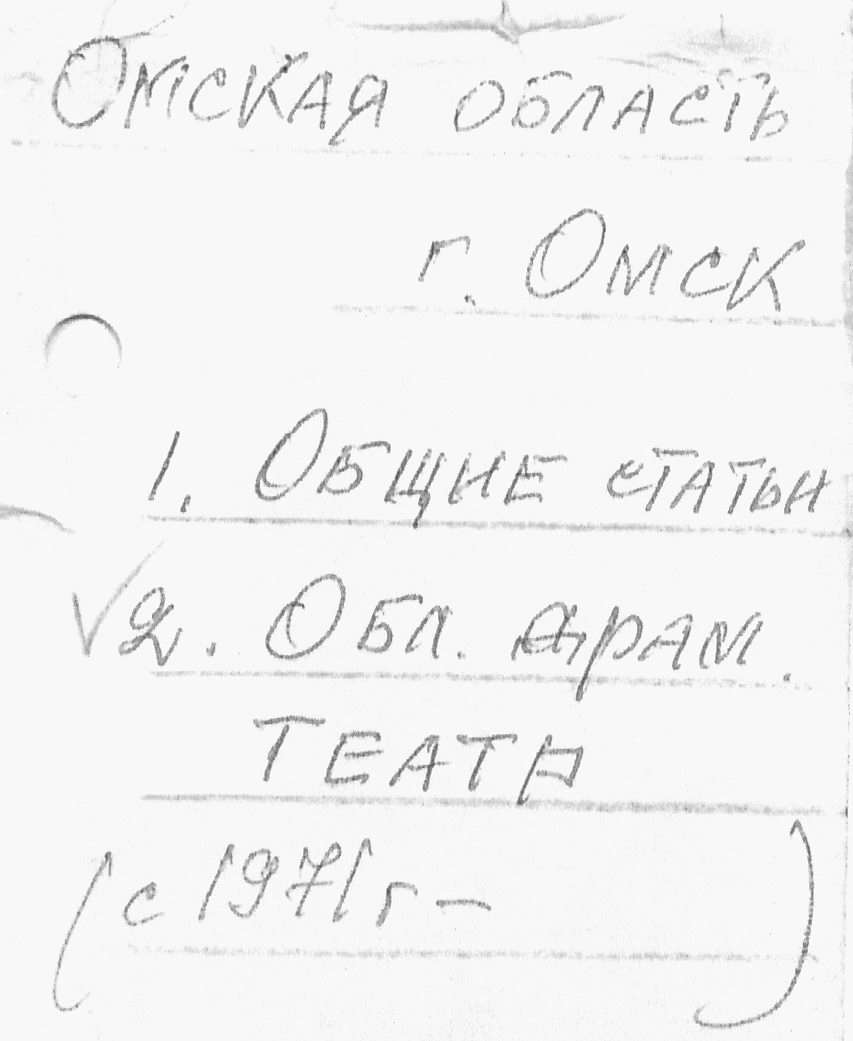 Омская область
г. Омск
1. Общие статьи
√2. Обл. драм.
театр
(с 1971г – )